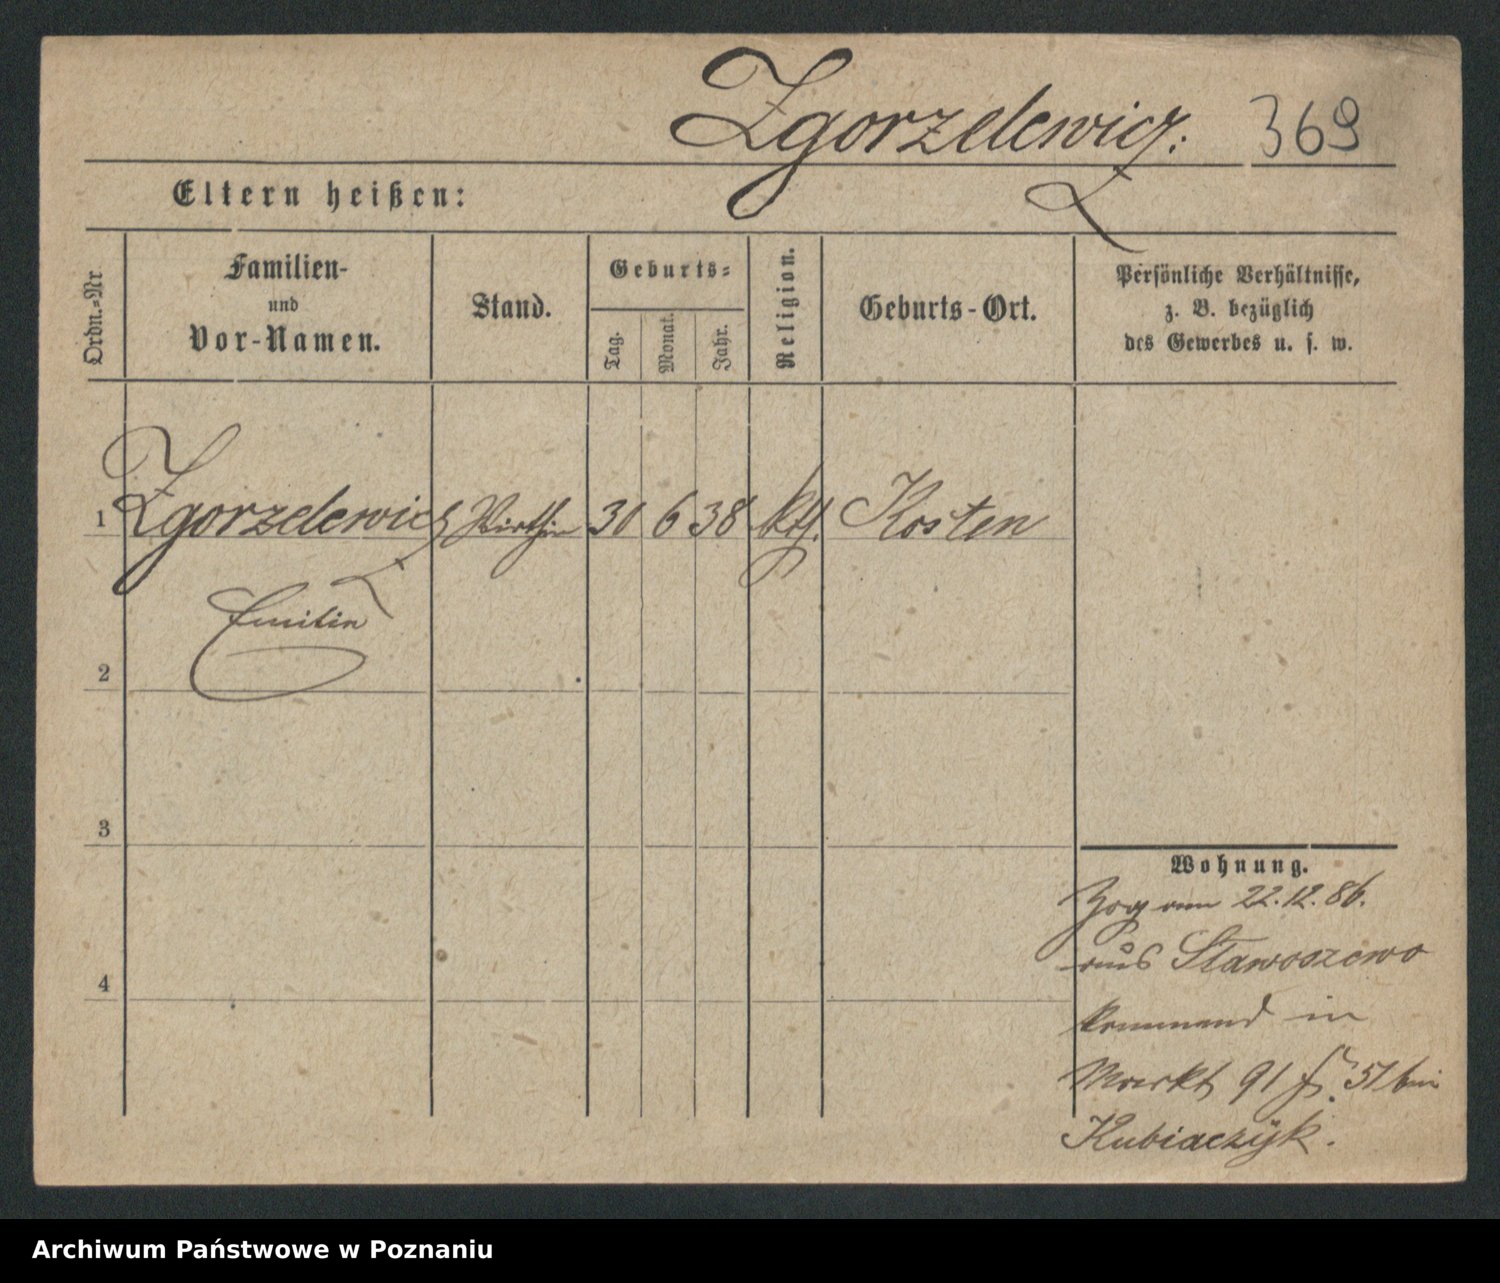 Zgorzelewicz: 369
Eltern heißen:
Ordn.=Nr
Familien-
und
Vor-Namen.
Stand.
Geburts=
Tag.
Monat.
Jahr.
Religion.
Geburts-Ort.
Persönliche Verhältnisse,
z. B. bezüglich
des Gewerbes u. s. w.
1 Zgorzelewicz Wirthin 30 6 38 kth. Kosten
Emilie
2
3
4
Wohnung.
Zog am 22.12.86.
aus Stawoszewo
kommend in
Markt 91 51 bei
Kubiaczÿk.
Archiwum Państwowe w Poznaniu